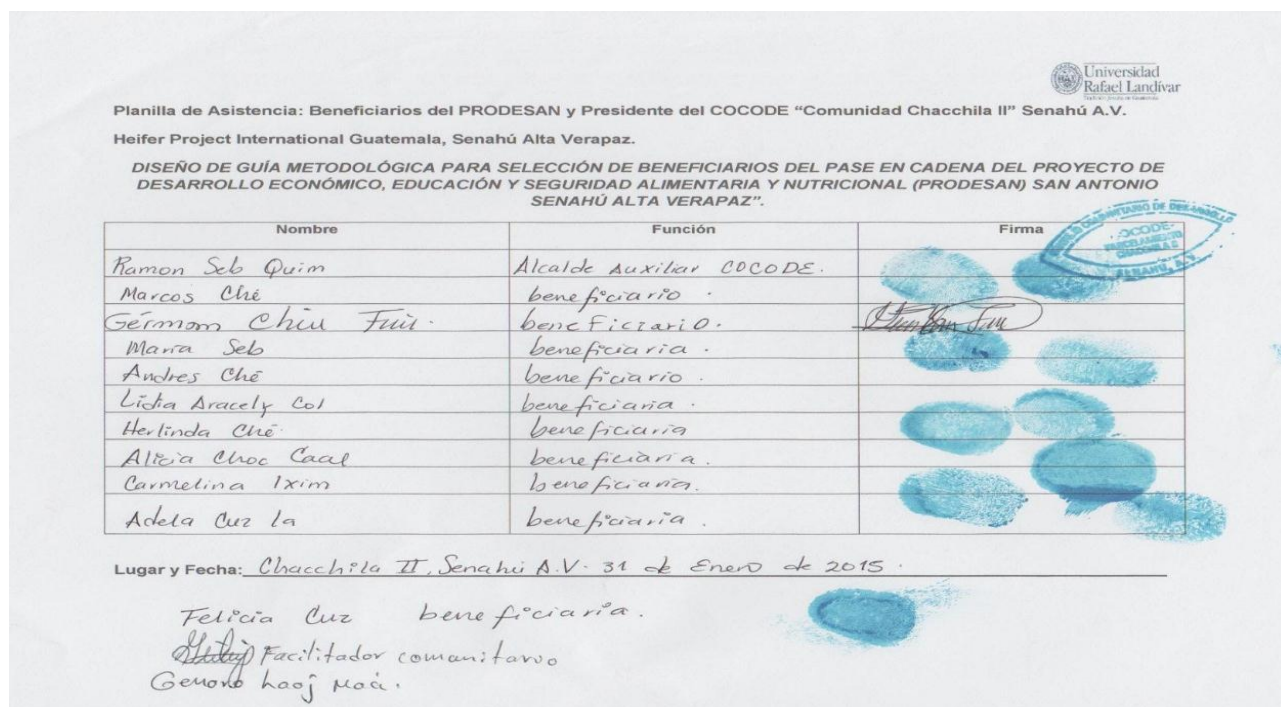 Universidad
Rafael Landívar
Planilla de Asistencia: Beneficiarios del PRODESAN y Presidente del COCODE "Comunidad Chacchila II" Senahú A.V.
Heifer Project International Guatemala, Senahú Alta Verapaz.
DISEÑO DE GUÍA METODOLÓGICA PARA SELECCIÓN DE BENEFICIARIOS DEL PASE EN CADENA DEL PROYECTO DE
DESARROLLO ECONÓMICO, EDUCACIÓN Y SEGURIDAD ALIMENTARIA Y NUTRICIONAL (PRODESAN) SAN ANTONIO
SENAHÚ ALTA VERAPAZ".
Nombre Función Firma
COCODE
Ramon Seb Quim Alcalde Auxiliar COCODE.
Marcos Ché beneficiario.
Gérmam Chiu beneficiario.
Maria Seb beneficiaria.
Andres Ché beneficiario.
Lidia Aracely Col beneficiaria.
Herlinda Ché. beneficiaria
Alicia Choc Caal beneficiaria.
Carmelina Ixim beneficiaria.
Adela Cuz la beneficiaria.
Lugar y Fecha: Chacchila II, Senahú A.V. 31 de Enero de 2015.
Felicia Cuz beneficiaria.
Facilitador comunitario